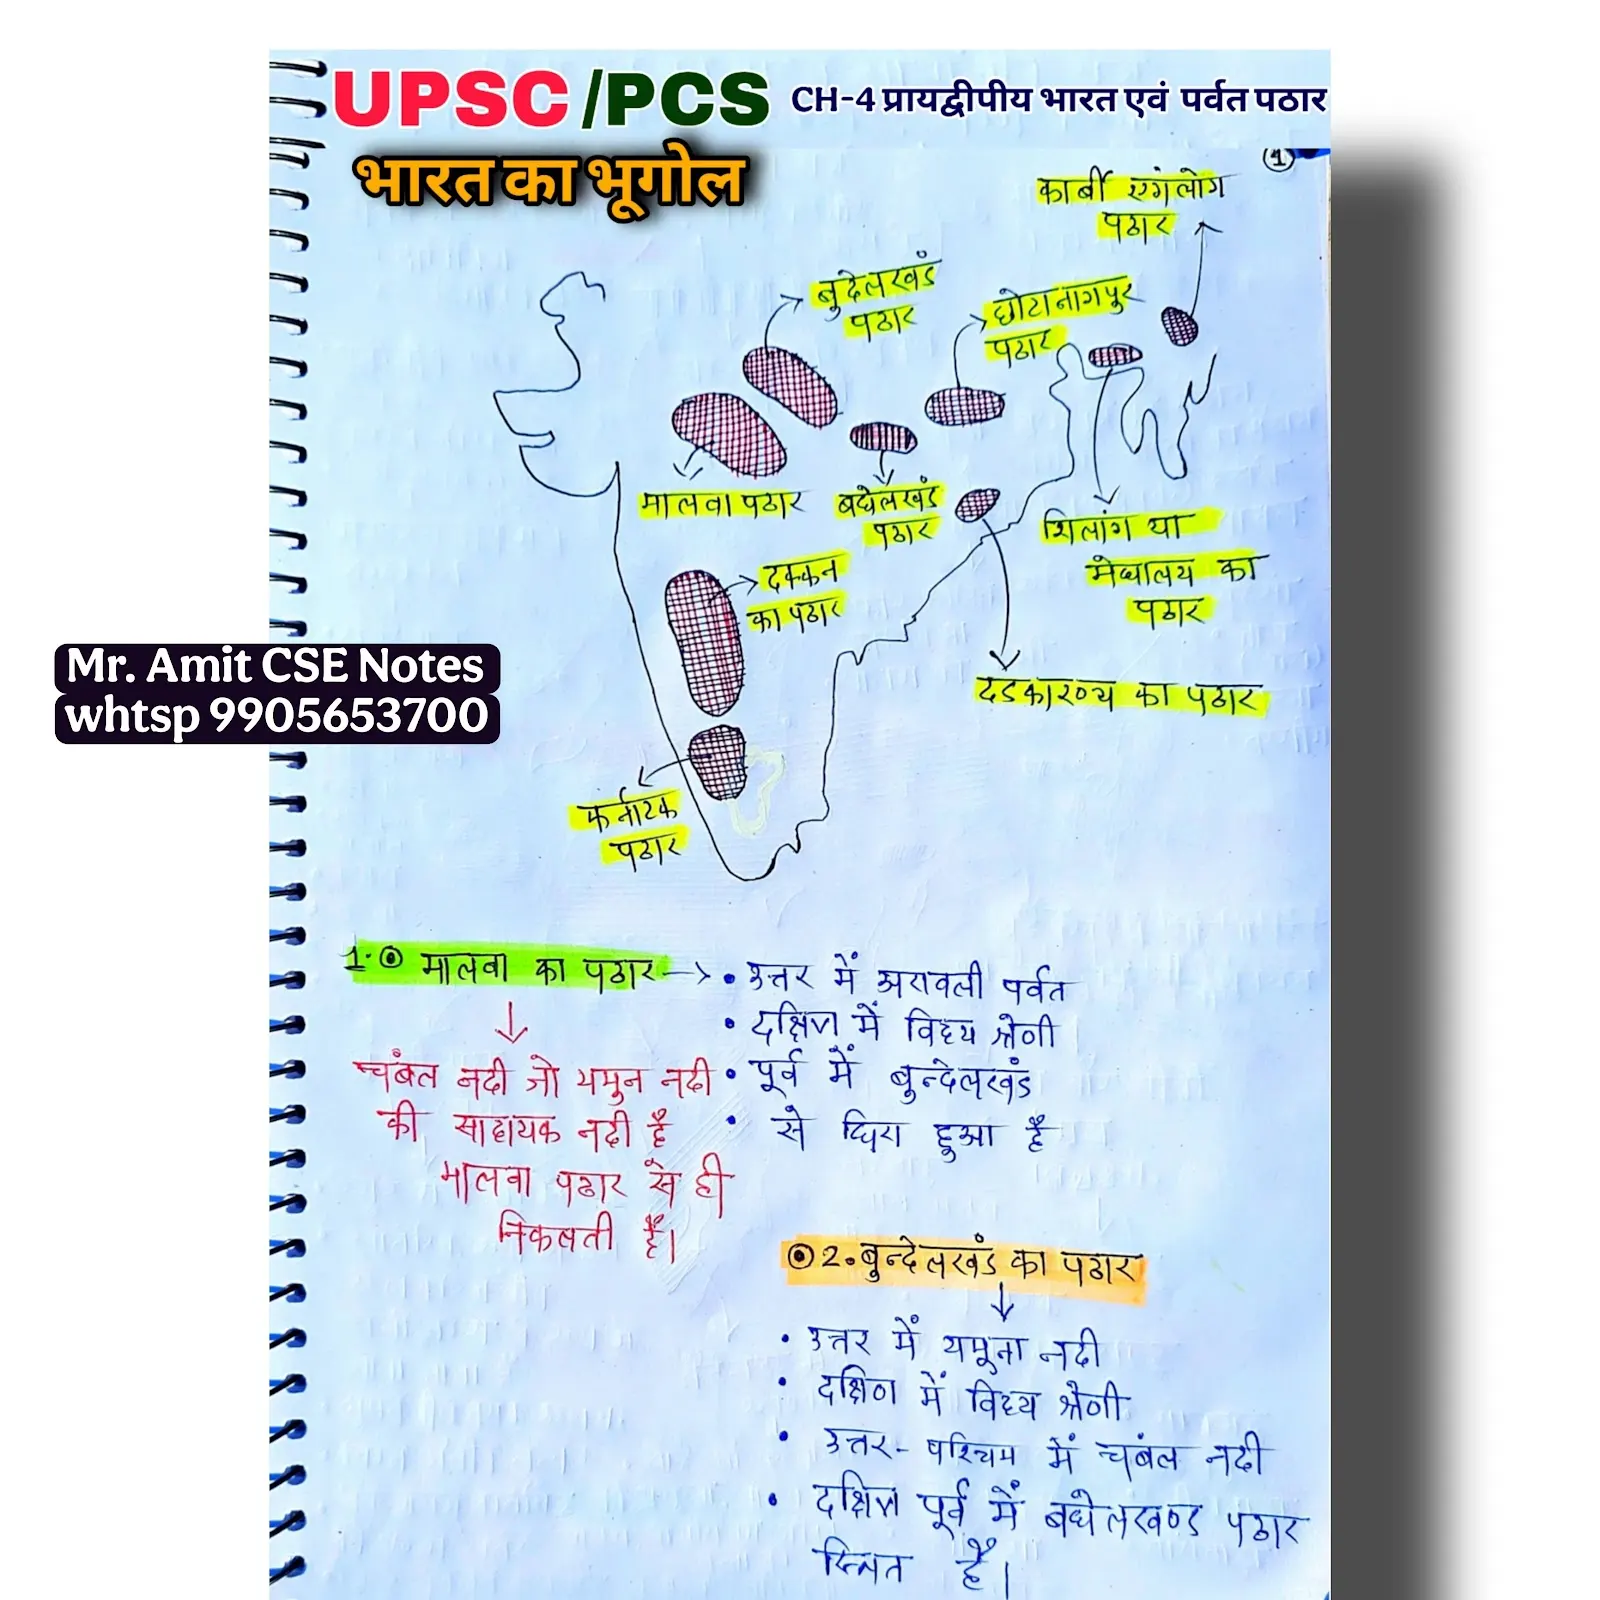 UPSC/PCS CH-4 प्रायद्वीपीय भारत एवं पर्वत पठार
भारत का भूगोल
1
कार्बी एगंलोग
पठार
बुदेलखंड
पठार
छोटानागपुर
पठार
मालवा पठार
बघेलखंड
पठार
शिलांग या
मेघालय का
पठार
दक्कन
का पठार
Mr. Amit CSE Notes
whtsp 9905653700
दडकारण्य का पठार
कर्नाटक
पठार
1. मालवा का पठार → • उत्तर में अरावली पर्वत
• दक्षिण में विंध्य श्रेणी
चंबल नदी जो यमुन नदी • पूर्व में बुन्देलखंड
की साहायक नदी है • से घिरा हुआ है
मालवा पठार से ही
निकलती है।
2. बुन्देलखंड का पठार
• उत्तर में यमुना नदी
• दक्षिण में विंध्य श्रेणी
• उत्तर- पश्चिम में चबंल नदी
• दक्षिण पूर्व में बघेलखण्ड पठार
स्थित है।